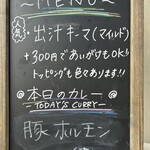 ~MENU~
人気
・出汁キーマ(マイルド)
+300円であいがけもOK!
トッピングも色々あります!!
@本日のカレー@
~TODAY'S CURRY~
豚ホルモン